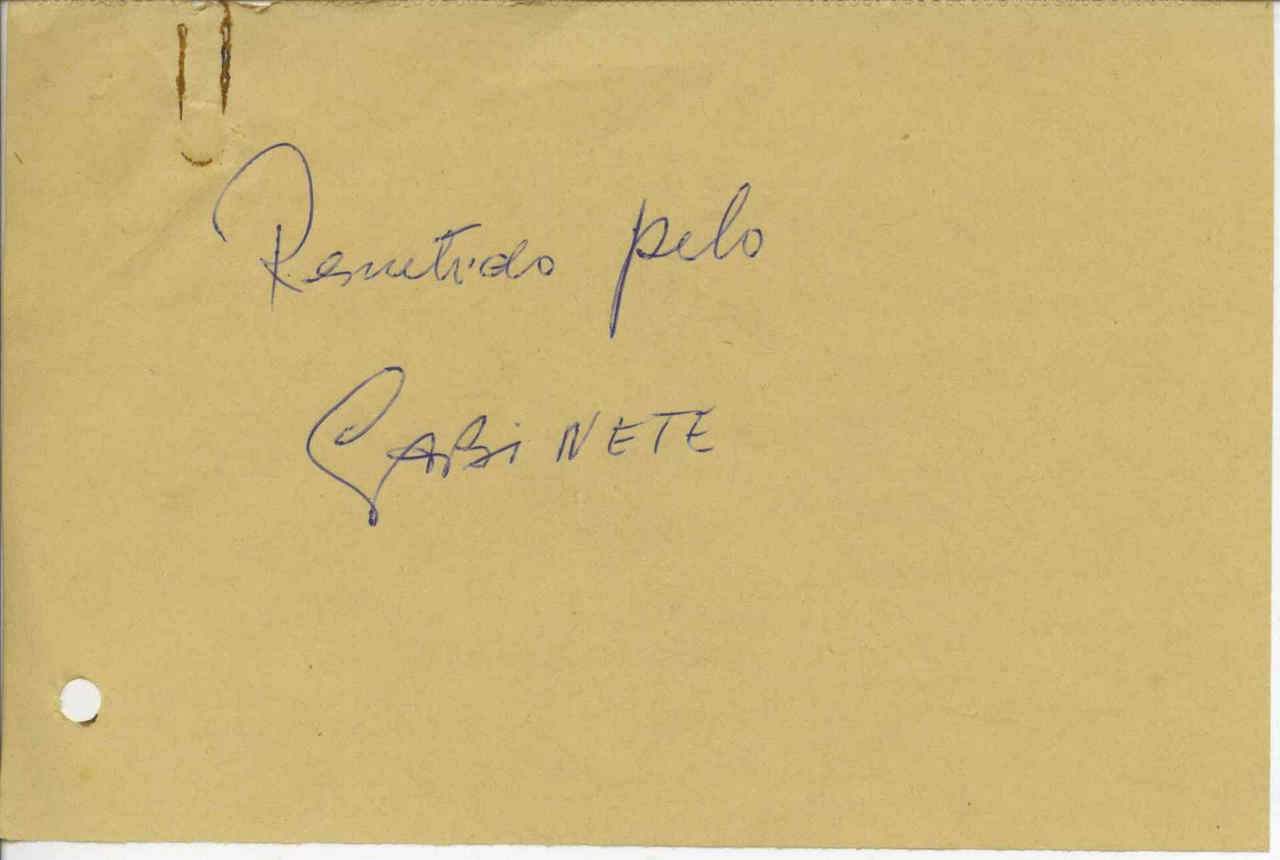 Remetido pelo
GABiNETE